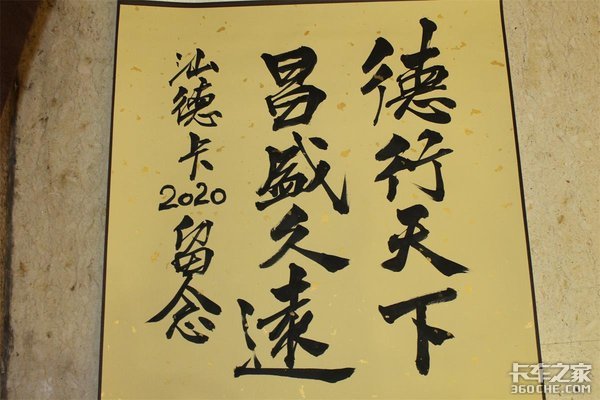 德行天下
昌盛久遠
汕德卡2020留念
卡车之家
360CHE.COM